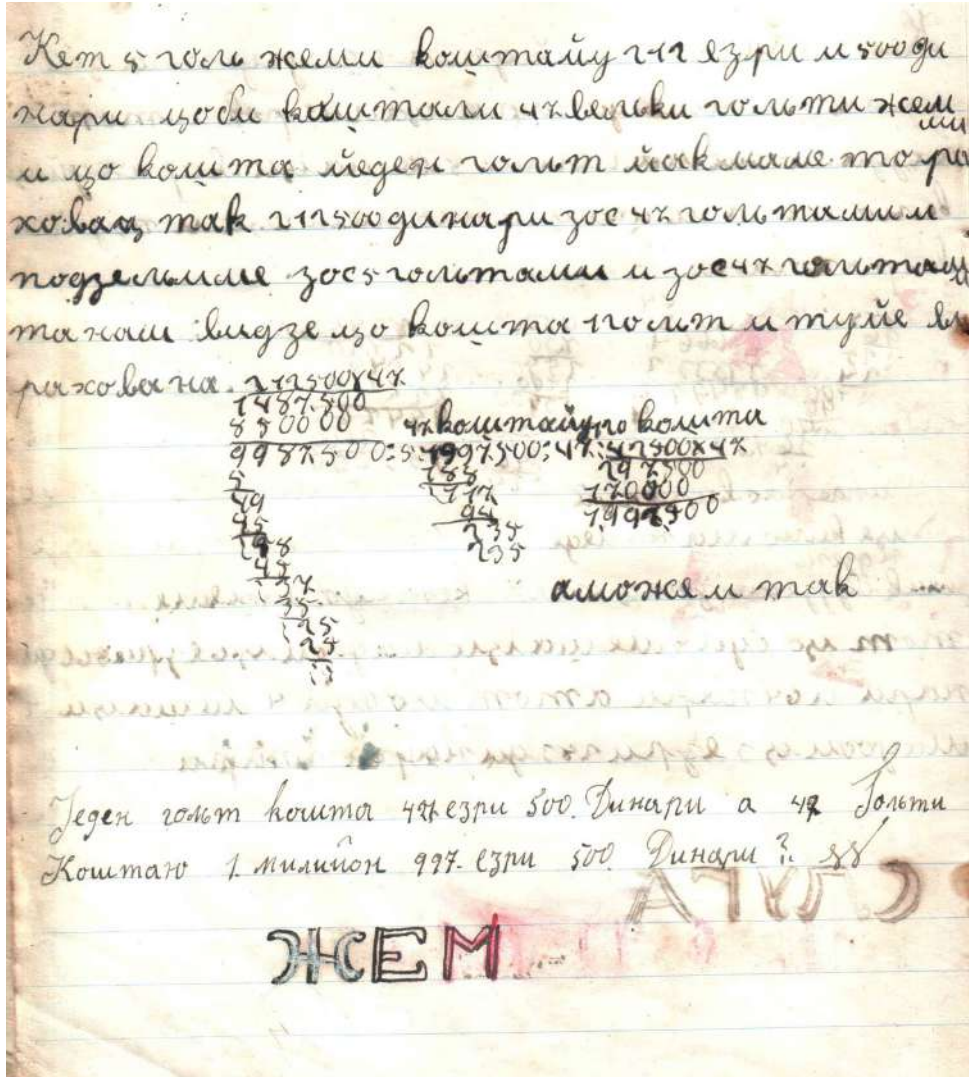 Кет 5 голь жеми коштайу 212 езри и 500 ди
нари цоби коштали 47 вельки гольти жем
ми
и цо кошта йеден гольт йак маме то ра
ховац так 212500 динари зос 47 гольтами и
подзельиме зос 5 гольтами и зос 47 гольтами
та наш видзе цо кошта 1 гольт и туйе ви
рахована. 212500x47
1487500
850000 47 коштайу цо кошта
9987500:5=1997500:47=42500x47
5 188 297500
49 117 170000
45 94 1997500
498 235
45 235
37
35
25
25
аможем и так
Једен гольт кошта 42 езри 500. Динари а 47 Гольти
Коштаю 1. милийон 997. езри 500 Динари
ЖЕМ